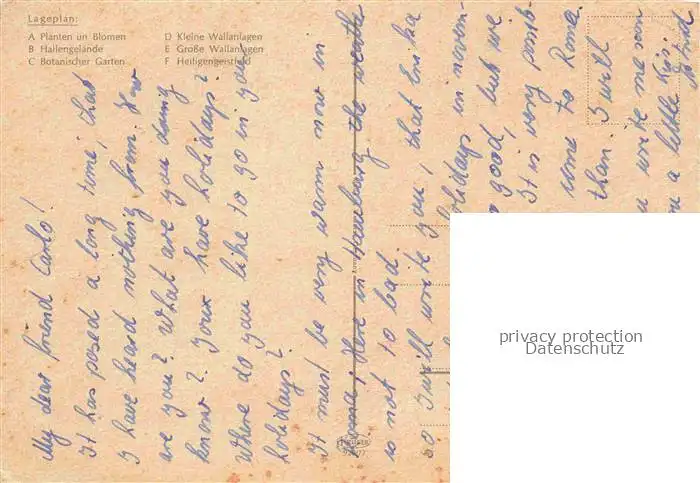 Lageplan:
A Planten un Blomen
B Hallengelände
C Botanischer Garten
D Kleine Wallanlagen
E Große Wallanlagen
F Heiligengeistfeld
My dear friend Carlo!
It has posed a long time, that
I have heard nothing from. How
are you? What are you doing
know? Your have holidays?
Where do you like to go in your
holidays?
It must be very warm now in
Roma, Here in Hamburg the weath
is not to bad.
So I will write you, that
holidays in novem-
good, but we
It is very possib-
come to Roma.
than. I will
write me soon
a little Kiss.
privacy protection
Datenschutz